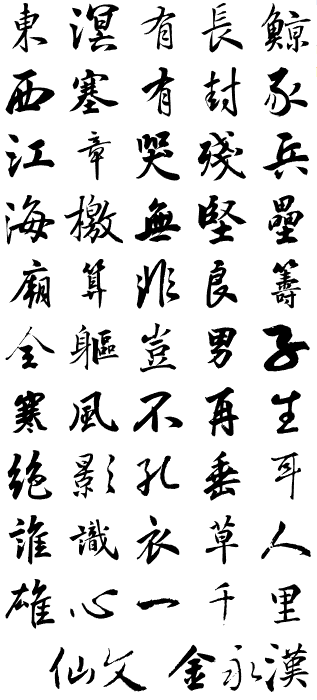 東溟有長鯨
西塞有封豕
江章哭殘兵
海檄無堅壘
廟算非良籌
全軀豈男子
寒風不再生
絕影孔垂耳
誰識衣草人
雄心一千里
仙文 金永漢